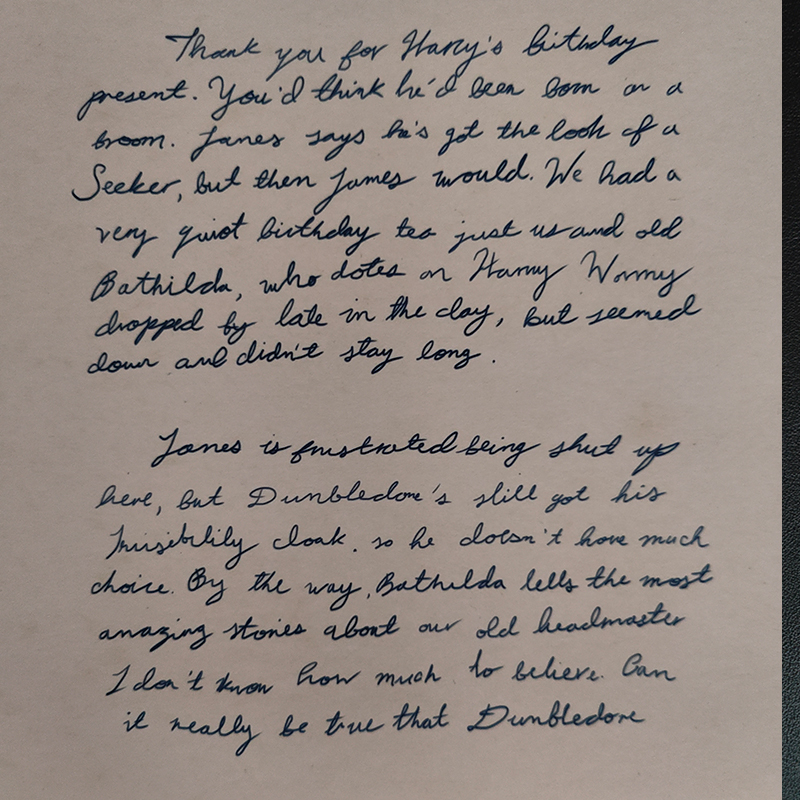 Thank you for Harry's birthday
present. You'd think he'd been born on a
broom. James says he's got the look of a
Seeker, but then James would. We had a
very quiet birthday tea just us and old
Bathilda, who dotes on Harry Wormy
dropped by late in the day, but seemed
down and didn't stay long.
James is frustrated being shut up
here, but Dumbledore's still got his
Invisibility cloak, so he doesn't have much
choice. By the way, Bathilda tells the most
amazing stories about our old headmaster
I don't know how much to believe. Can
it really be true that Dumbledore